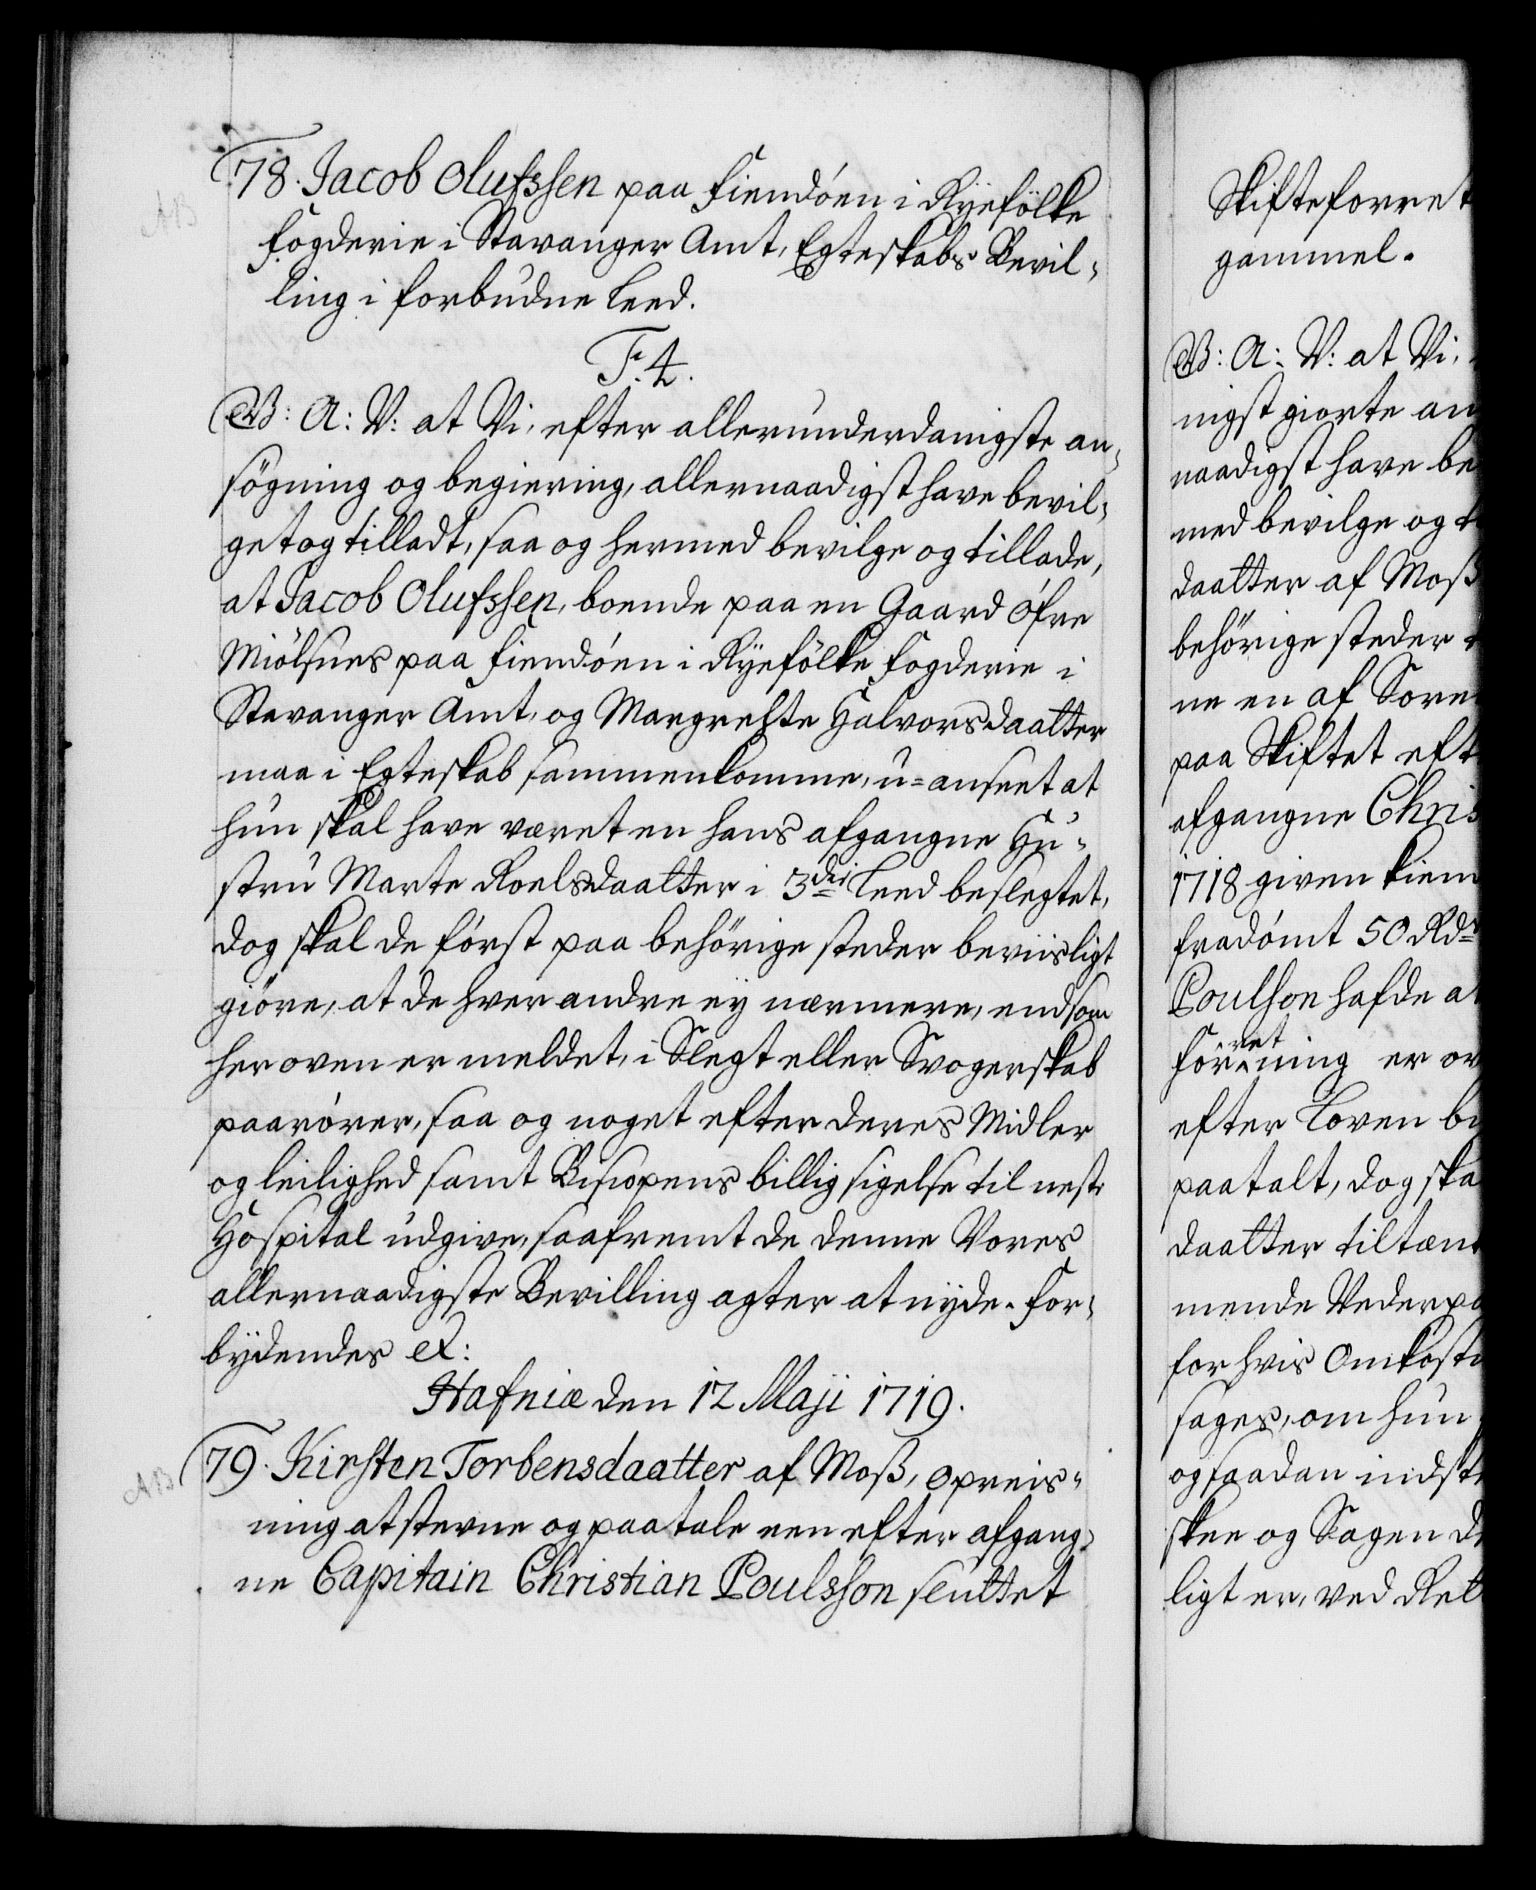 78. Jacob Olufssen paa Fiendöen i Ryefölke
Fogderie i Stavanger Amt, Egteskabs Bevil-
ling i forbudne leed.
F. 4.
G. A: V: at Vi, efter allerunderdanigste an-
søgning og begiering, allernaadigst have bevil-
get og tilladt, saa og hermed bevilge og tillade,
at Jacob Olufssen, boende paa en Gaard Öfre
Miölsnes paa Fiendöen i Ryefölke Fogderie i
Stavanger Amt, og Margrehte Halvorsdaatter
maa i Egteskab sammenkomme, u-anseet at
hun skal have været en hans afgangne Hu-
stru Marte Roelsdaatter i 3die Leed beslegtet,
dog skal de först paa behörige steder beviisligt
giöre, at de hver andre ey nærmere, end som
her oven er meldet, i Slegt eller Svogerskab
paarörer, saa og noget efter deres Midler
og leilighed samt Biscopens billig sigelse til neste
Hospital udgive, saafremt de denne Vores
allernaadigste Bevilling agter at nyde. For-
bydendes &:
Hafniæ den 12 Maji 1719.
79. Kirsten Torbensdaatter af Moß, opreis-
ning at stevne og paatale een efter afgang-
ne Capitain Christian Poulsson sluttet
Skifteforret
gammel.
G: A: V: at Vi,
nigst giorte an
naadigst have be
med bevilge og t
daatter af Moß
behörige steder
ne en af Soren
paa Skiftet eft
afgangne Chris
1718 given kien
fradömt 50 Rdr
Poulson hafde at
forretning er ov
efter Loven
paatalt, dog ska
daatter tiltæn
mende Vederpa
for hvis Omkost
sages, om hun
og saadan indst
skee og Sagen
ligt er, ved Ret